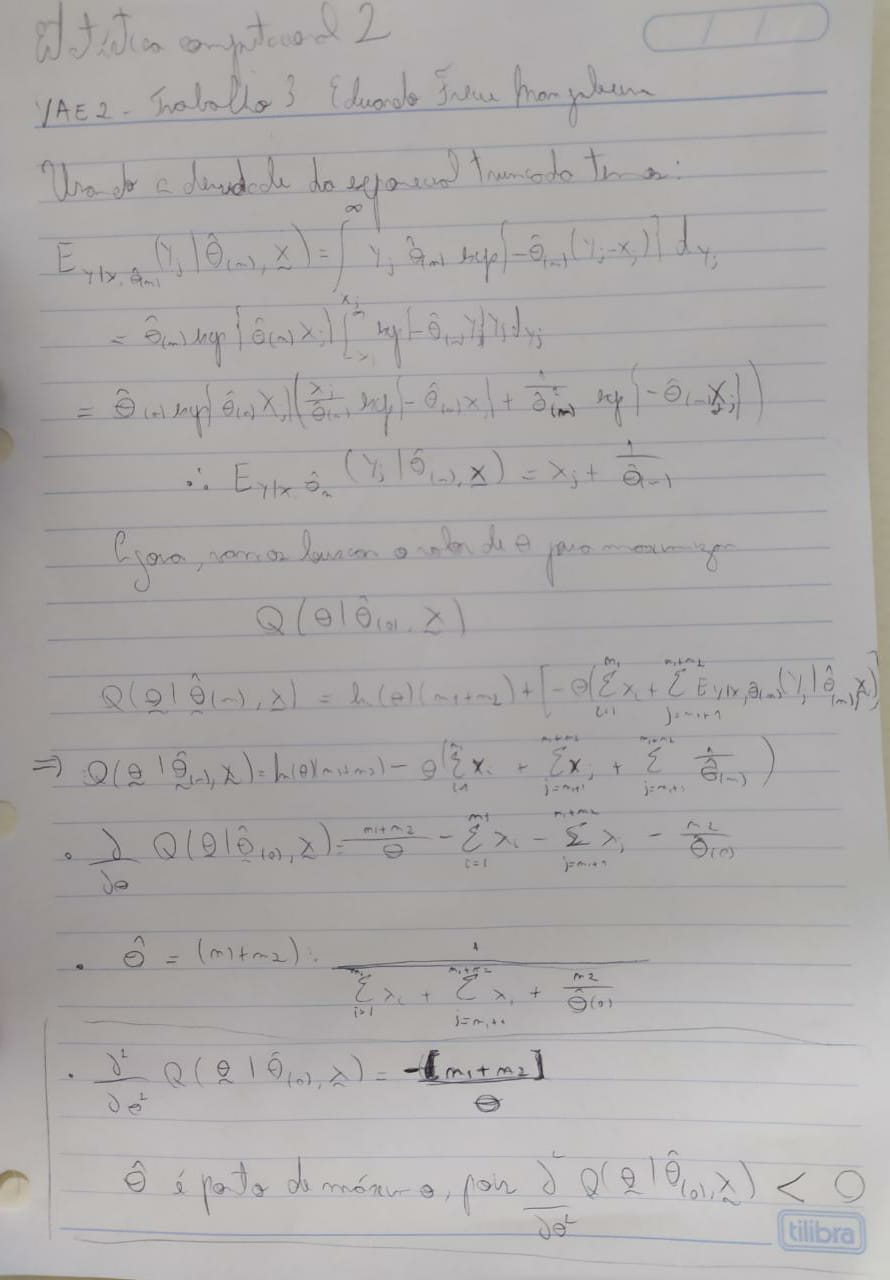 Estatística computacional 2
VAE2 - Trabalho 3 Eduardo
Usando a densidade da exponencial truncada temos:
E_{Y|x, θ̂(m)} (Y_j | θ̂(m), x) = ∫_{x_j}^{∞} Y_j θ̂(m) exp{-θ̂(m)(Y_j - x_j)} dy_j
= θ̂(m) exp{θ̂(m) x_j} ∫_{x_j}^{∞} exp{-θ̂(m) Y_j} Y_j dy_j
= θ̂(m) exp{θ̂(m) x_j} (x_j/θ̂(m) exp{-θ̂(m) x_j} + 1/θ̂²(m) exp{-θ̂(m) x_j})
∴ E_{Y|x θ̂m} (Y_j | θ̂(m), x) = x_j + 1/θ̂(m)
Agora, vamos buscar o valor de θ para maximizar
Q(θ | θ̂(0), x)
Q(θ | θ̂(m), x) = ln(θ)(m1+m2) + [-θ(Σ_{i=1}^{m1} x_i + Σ_{j=m1+1}^{m1+m2} E_{Y|x, θ̂(m)} (Y_j | θ̂(m), x)]
⇒ Q(θ | θ̂(m), x) = ln(θ)(m1+m2) - θ(Σ_{i=1} x_i + Σ_{j=m1+1}^{m1+m2} x_j + Σ_{j=m1+1}^{m1+m2} 1/θ̂(m))
• ∂/∂θ Q(θ | θ̂(0), x) = (m1+m2)/θ - Σ_{i=1}^{m1} x_i - Σ_{j=m1+1}^{m1+m2} x_j - m2/θ̂(0)
• θ̂ = (m1+m2) · 1/(Σ_{i=1}^{m1} x_i + Σ_{j=m1+1}^{m1+m2} x_j + m2/θ̂(0))
• ∂²/∂θ² Q(θ | θ̂(0), x) = -[m1+m2]/θ
θ̂ é ponto de máximo, pois ∂²/∂θ² Q(θ | θ̂(0), x) < 0
tilibra